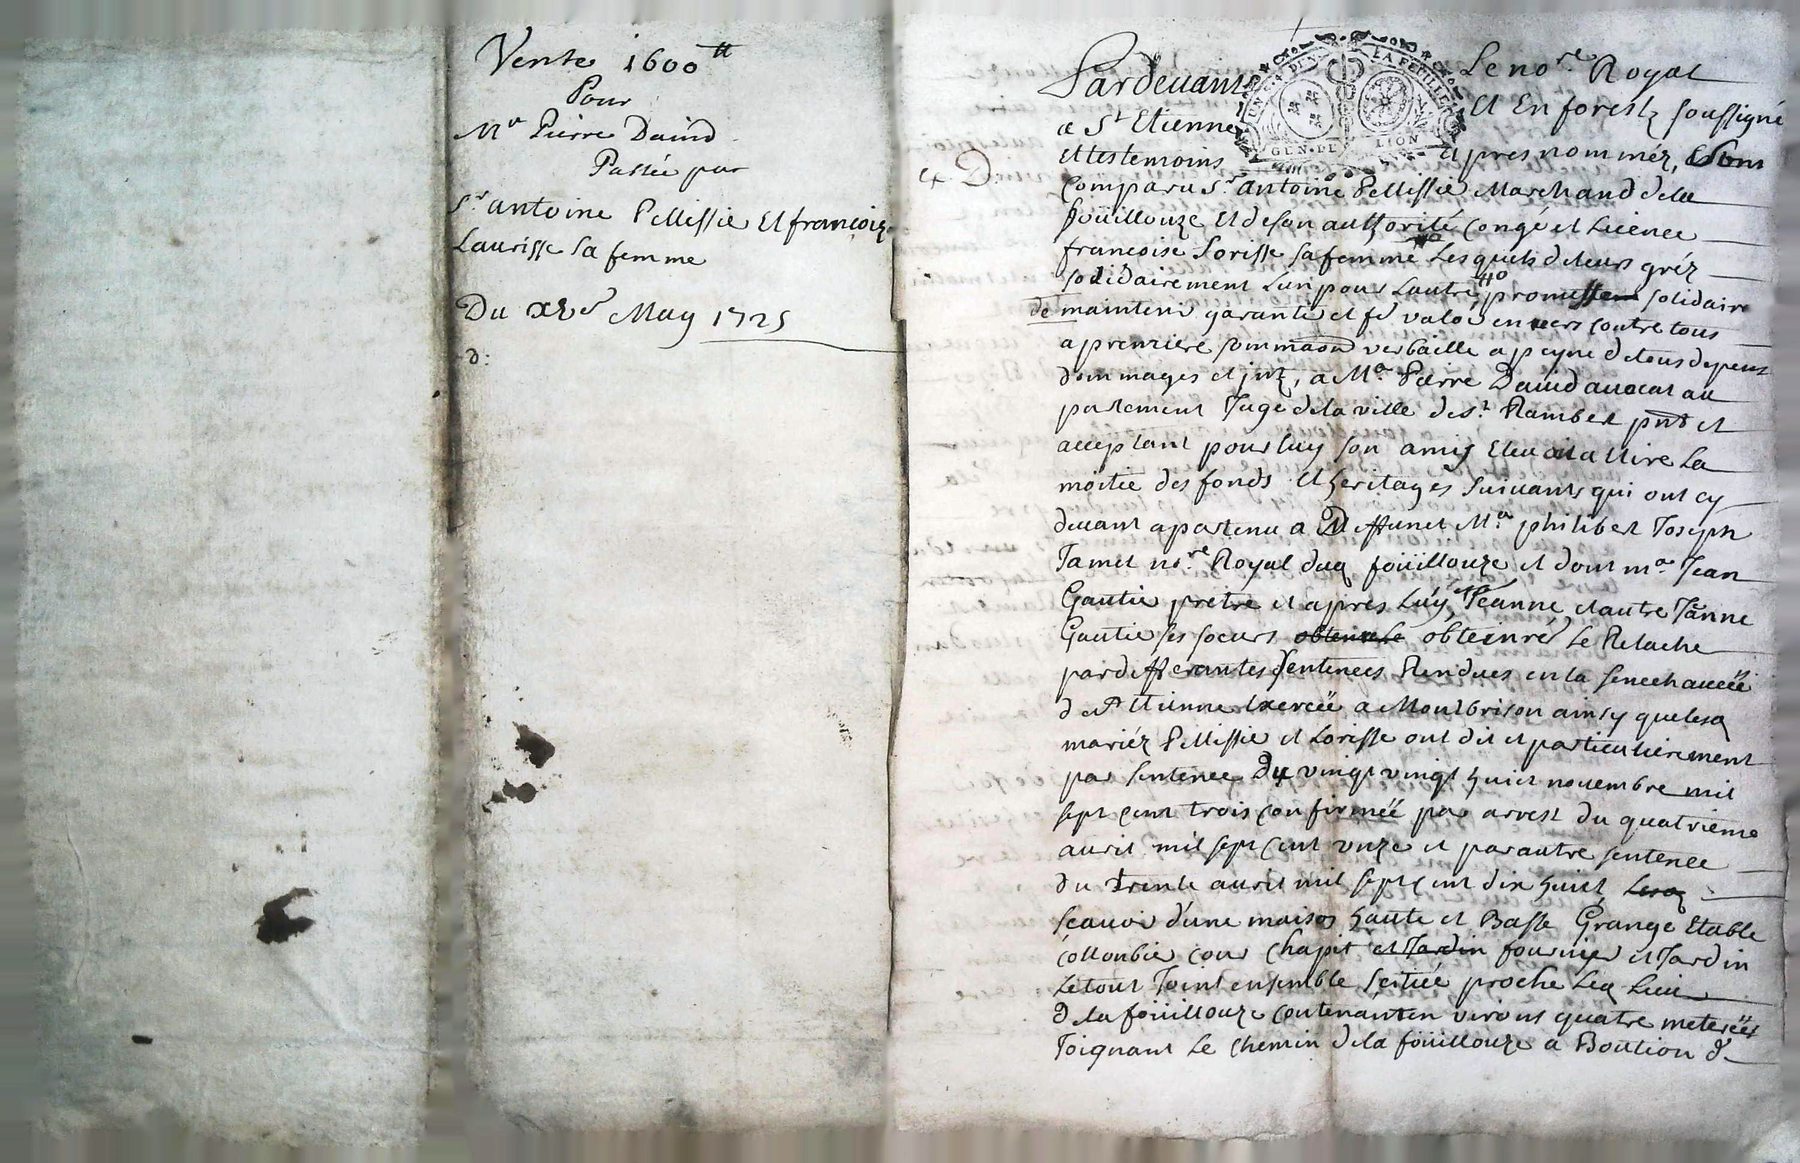 Vente 1600 tt
Pour
Mr Pierre Dauid
Passée par
Sr antoine Pellissié Et francoize
Laurisse sa femme
Du May 1725
d:
Pardeuant Le nore Royal
a St Etienne Et En forestz soussigné
et testemoins apres nommér,
Comparu Sr antoine Pellissié Marchand dela
foüillouze Et deson authorité Congé et Licence
francoise Lorisse sa femme Lesquels deleurs gréz
solidairement Lun pour Lautre, promettent solidaire
de maintenir garantir et fe valoir enuers contre tous
a premiere sommaon verbaille a peyne detous depens
dommages et jntz, a Me Pierre Dauid auocat au
parlement Juge dela ville de st Rambert pnt et
acceptant pour luy son amis La
moitié des fonds et heritages Suiuants qui ont cy
deuant apartenu a Deffunct Me philibert Joseph
Jamet nore Royal dud foüillouze et dont me Jean
Gautié pretre et apres Luy, Jeanne, et autre Janne
Gautié ses soeurs obtenre Le Relache
par differantes Sentences Rendues en la senechaucéé
de st Etienne Exercéé a Montbrison ainsy quelesd
mariéz Pellissié et Lorisse ont dit et particulierement
par sentence Du vingt vingt huict nouembre mil
sept cent trois confirméé par arrest du quatrieme
auril mil sept cent unze et par autre sentence
du trente auril mil sept cent dix huict Lesd
scauoir d'une maison haute et Basse Grange Etable
Collonbié cour chapit et Jardin fournier et Jardin
Le tout Joint ensemble scituéé proche Led Lieu
de la foüillouze contenant en virons quatre meteréés
Joignant Le chemin dela foüillouze a Boution d-